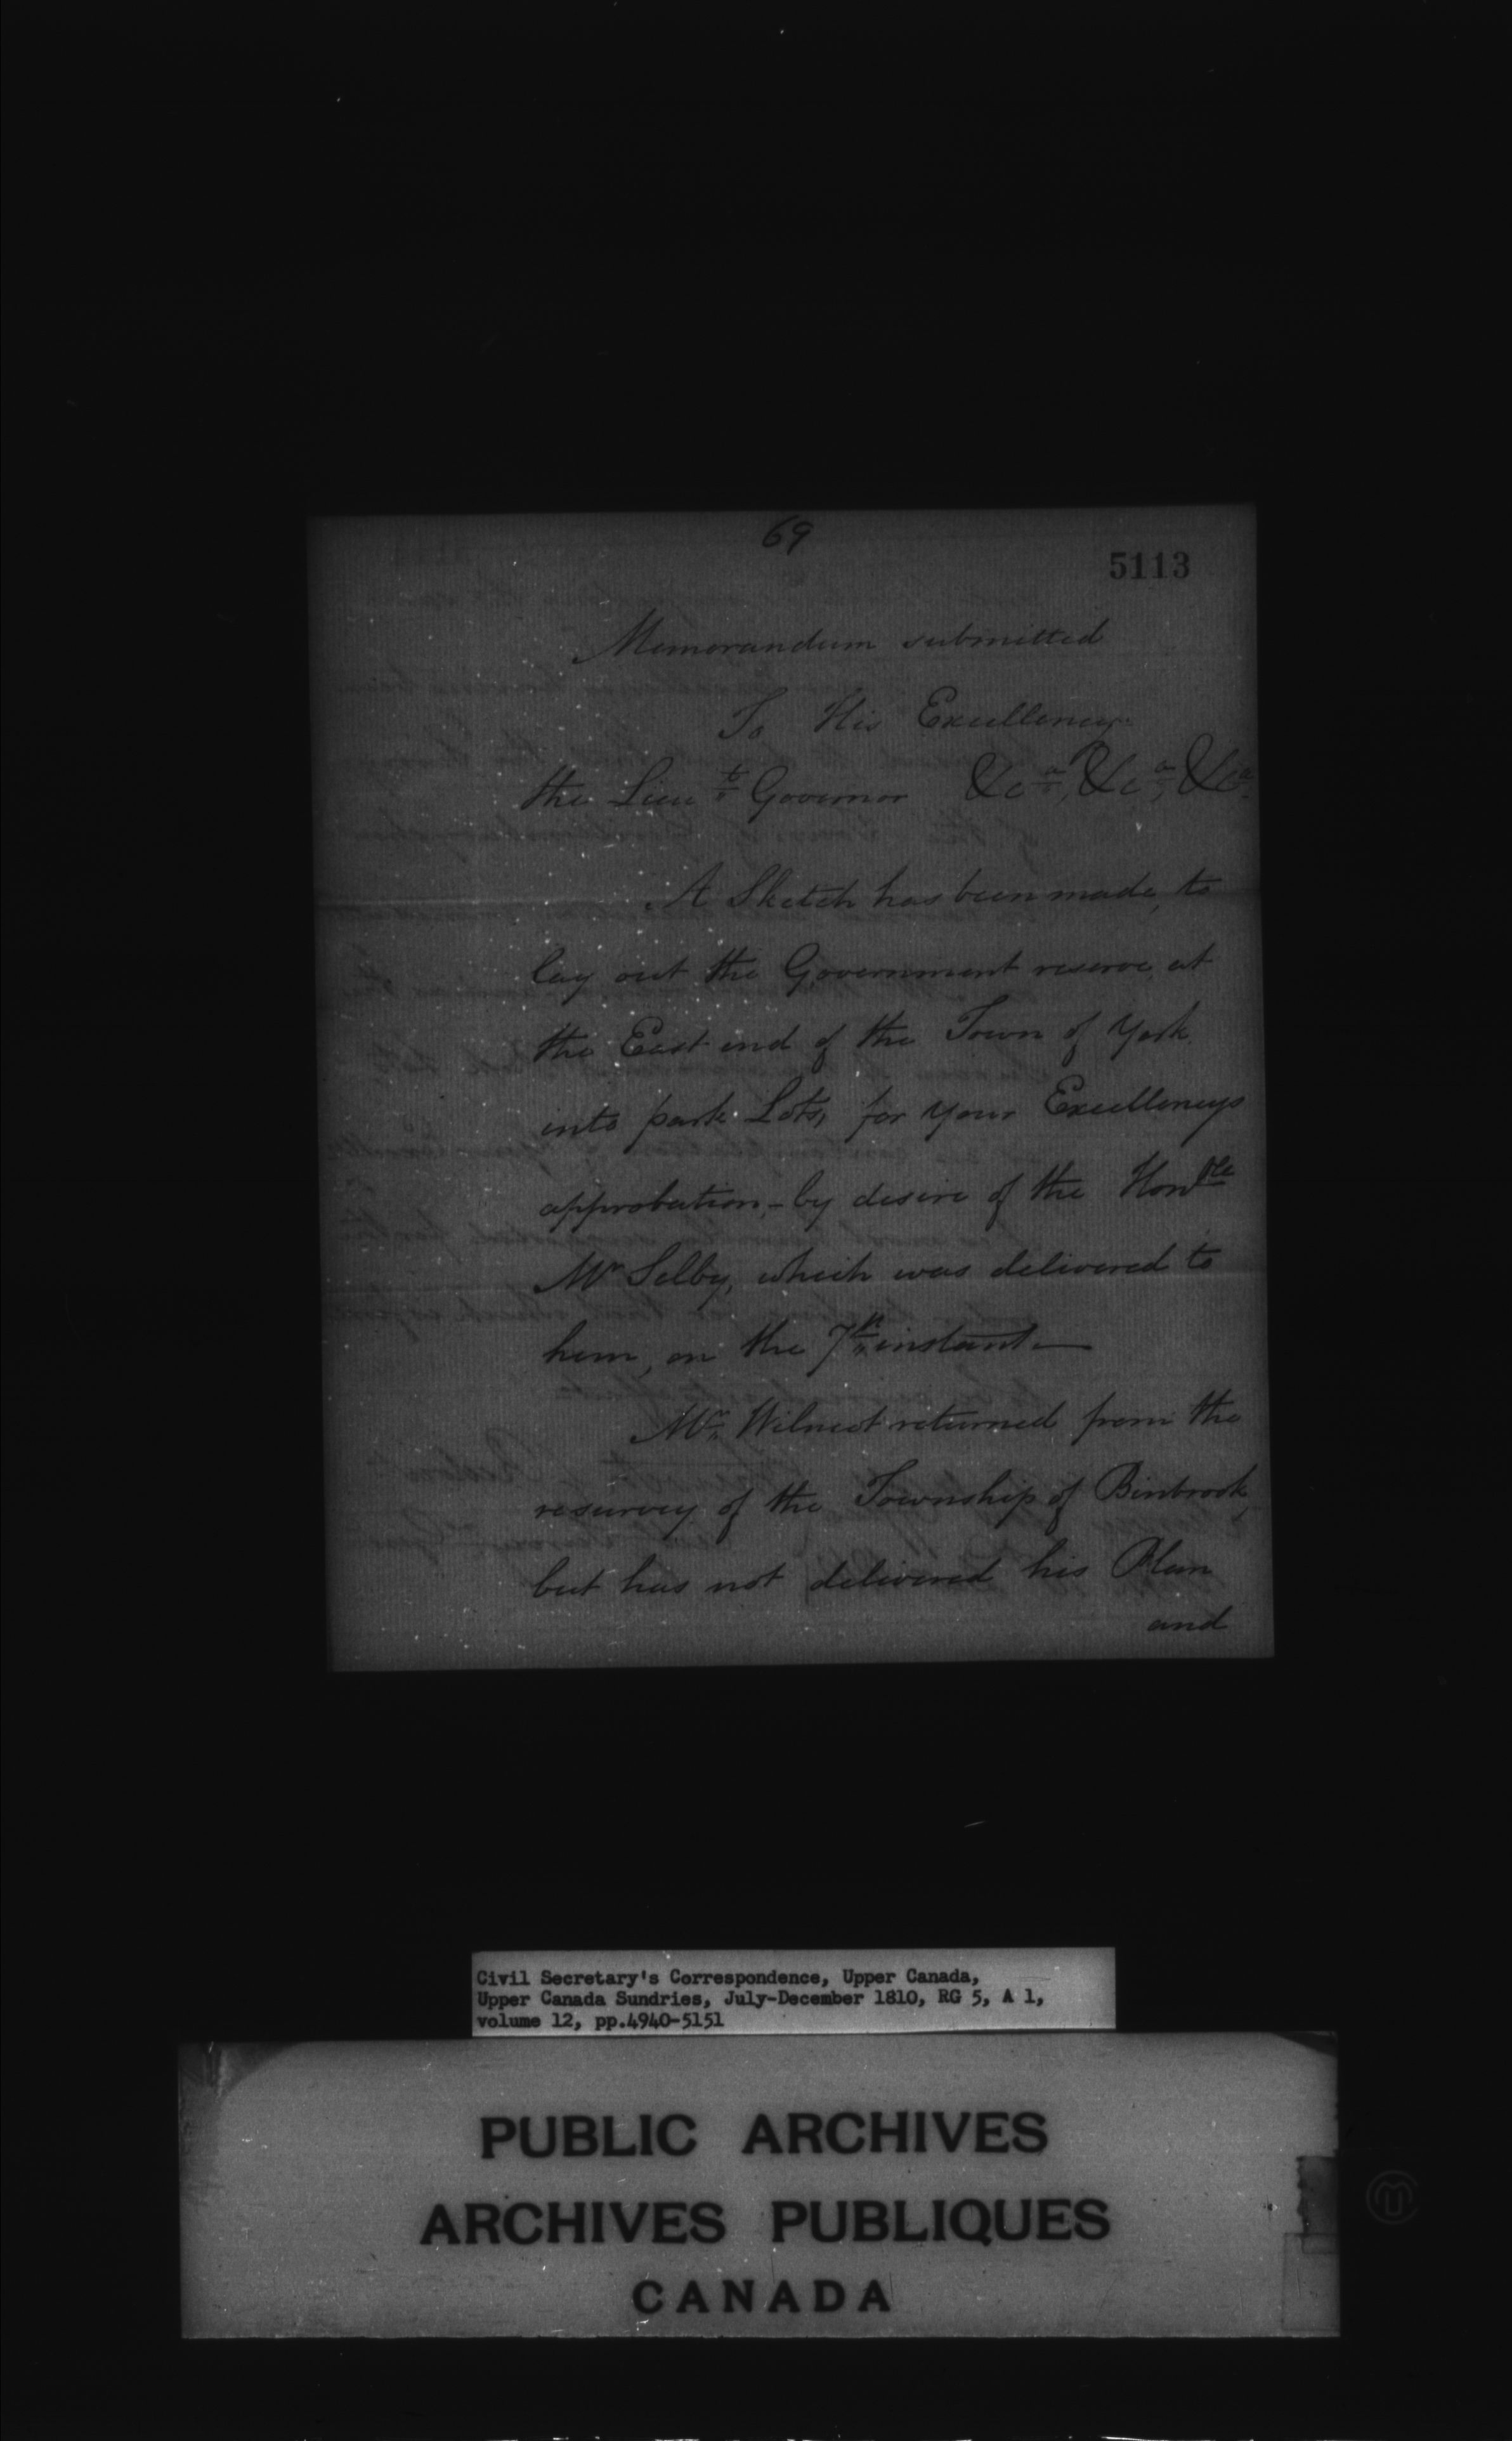 69
5113
Memorandum submitted
To His Excellency
the Lieut Governor &ca, &ca, &ca.
A Sketch has been made, to
lay out the Government reserve, at
the East end of the Town of York
into park Lots, for your Excellencys
approbation,- by desire of the Honble
Mr Selby, which was delivered to
him, on the 7th instant
Mr Wilmot returned from the
resurvey of the Township of Binbrook,
but has not delivered his Plan
and
Civil Secretary's Correspondence, Upper Canada,
Upper Canada Sundries, July-December 1810, RG 5, A 1,
volume 12, pp.4940-5151
PUBLIC ARCHIVES
ARCHIVES PUBLIQUES
CANADA